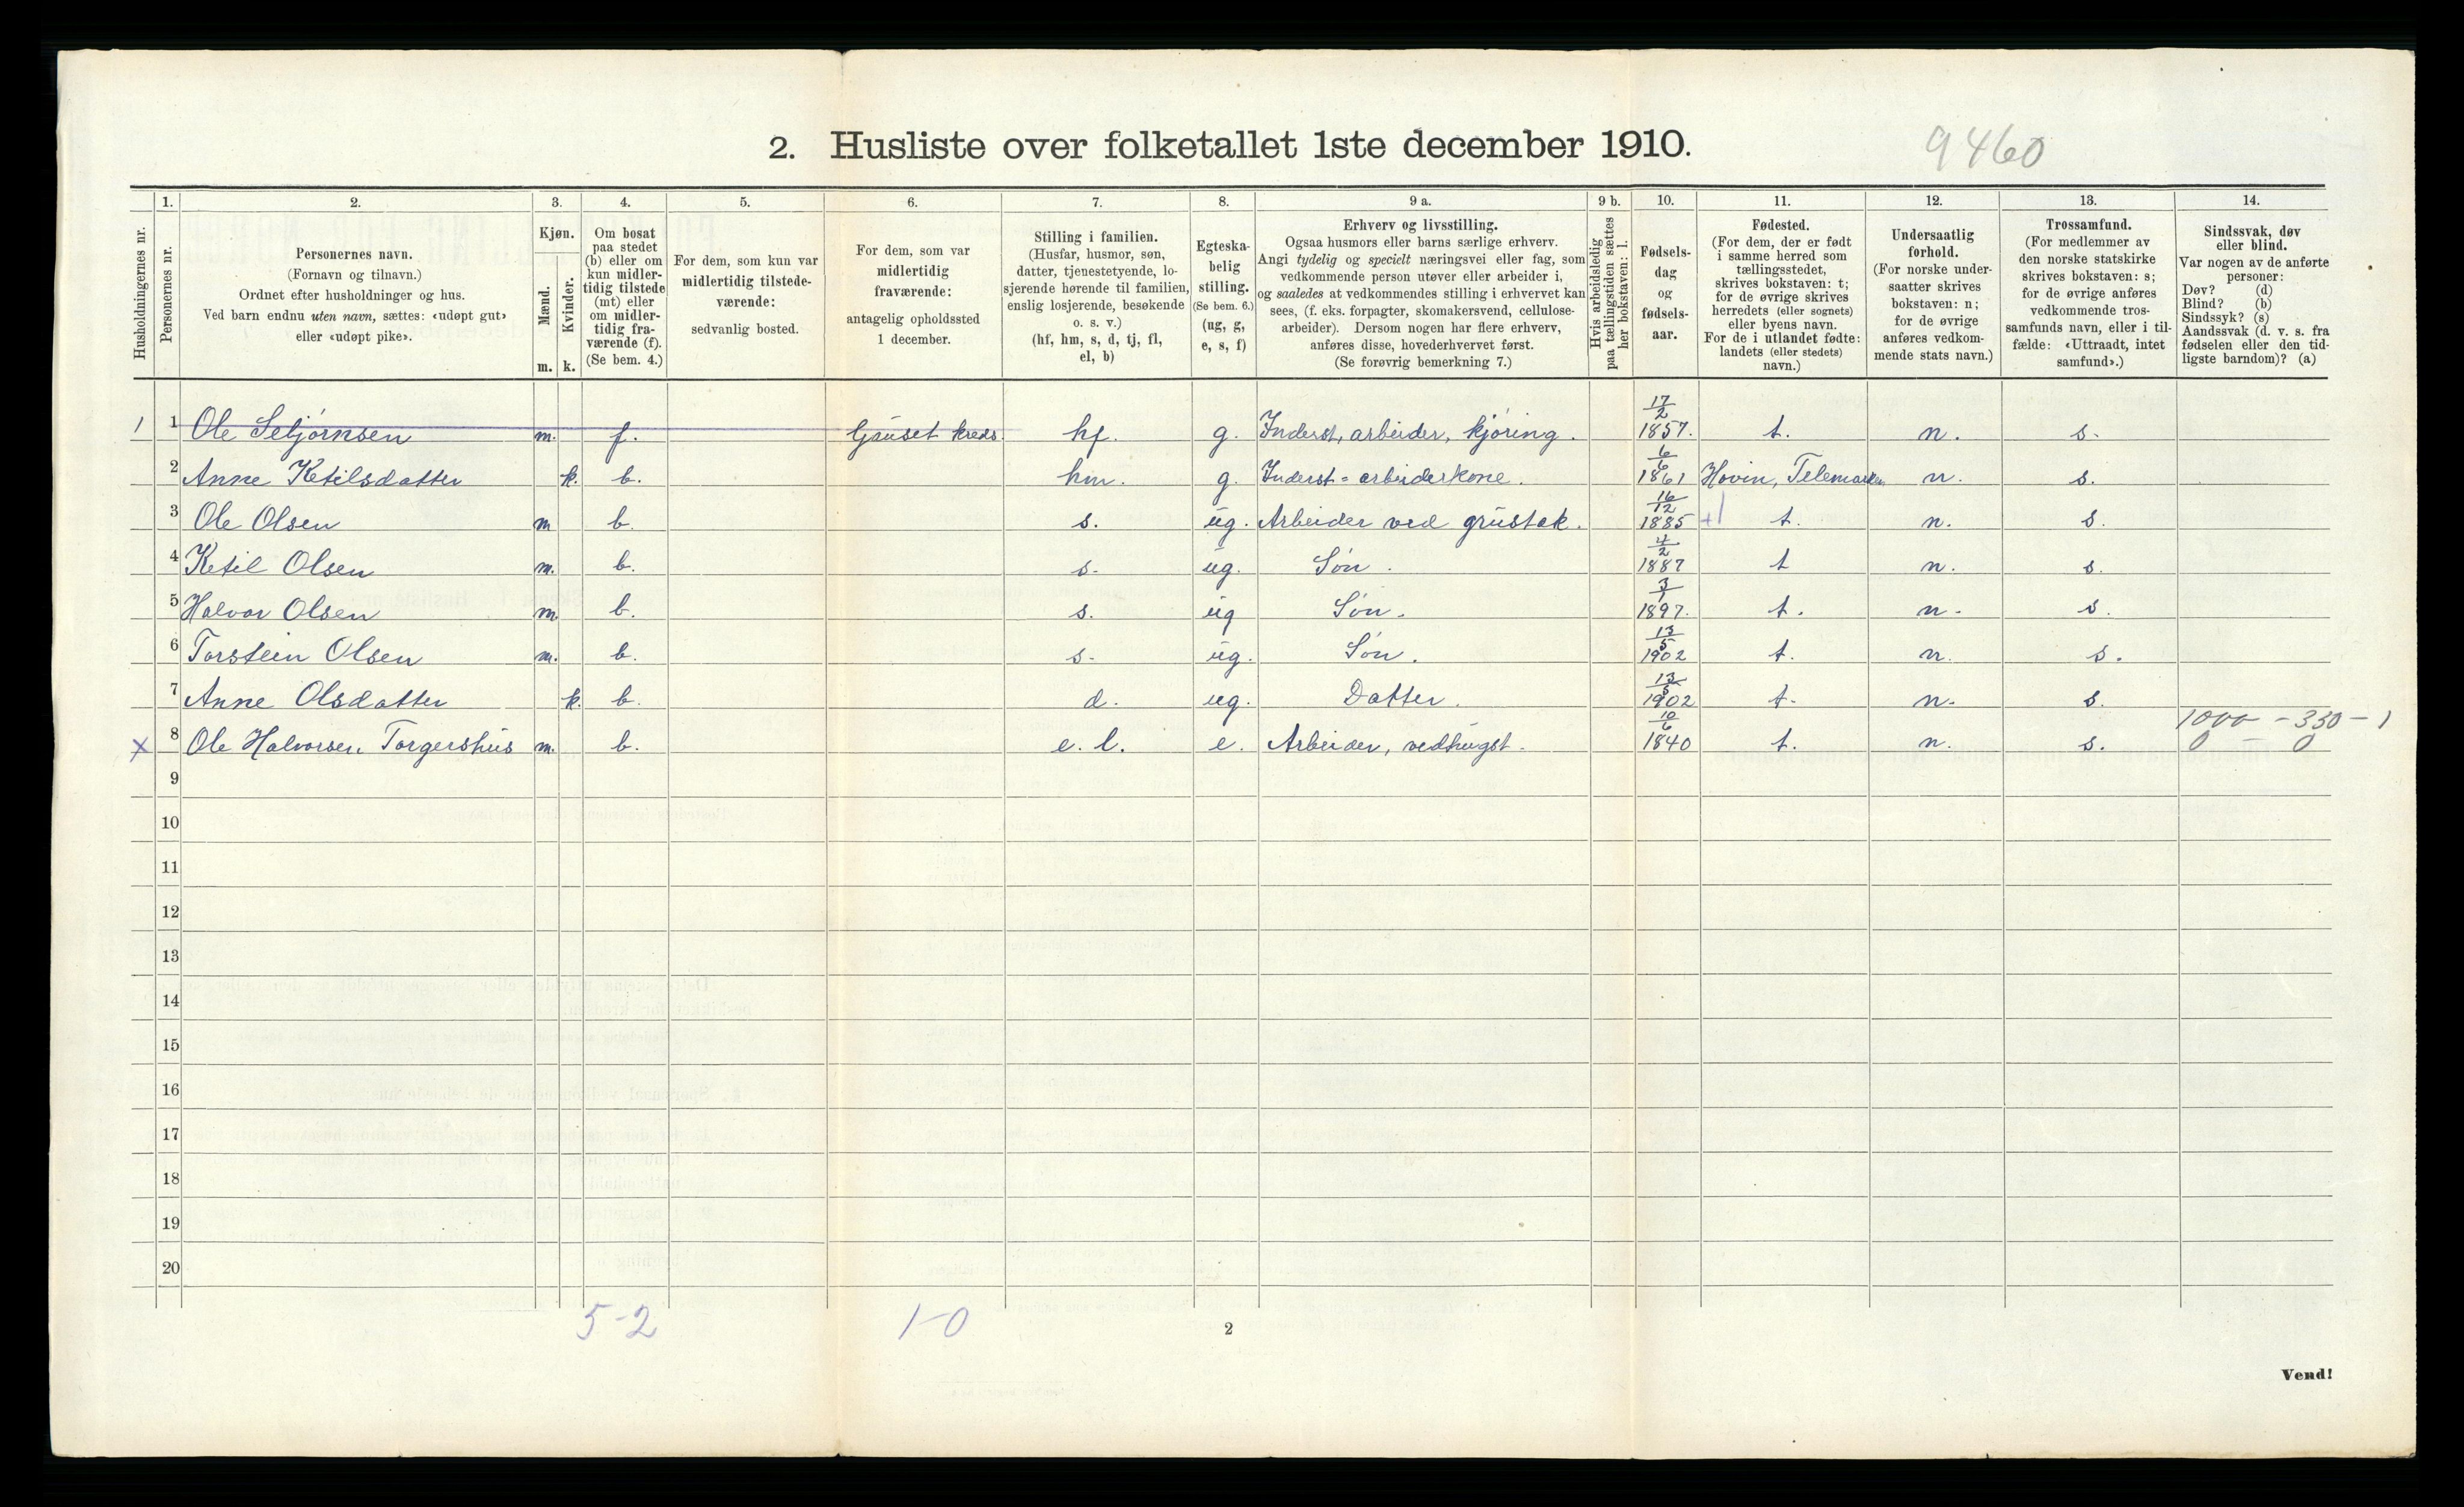 2. Husliste over folketallet 1ste december 1910.
9460
Husholdningernes nr.
1.
Personernes nr.
2.
Personernes navn.
(Fornavn og tilnavn.)
Ordnet efter husholdninger og hus.
Ved barn endnu uten navn, sættes: «udøpt gut»
eller «udøpt pike».
3.
Kjøn.
Mænd.
Kvinder.
m. k.
4.
Om bosat
paa stedet
(b) eller om
kun midler-
tidig tilstede
(mt) eller
om midler-
tidig fra-
værende (f).
(Se bem. 4.)
5.
For dem, som kun var
midlertidig tilstede-
værende:
sedvanlig bosted.
6.
For dem, som var
midlertidig
fraværende:
antagelig opholdssted
1 december.
7.
Stilling i familien.
(Husfar, husmor, søn,
datter, tjenestetyende, lo-
sjerende hørende til familien,
enslig losjerende, besøkende
o. s. v.)
(hf, hm, s, d, tj, fl,
el, b)
8.
Egteska-
belig
stilling.
(Se bem. 6.)
(ug, g,
e, s, f)
9 a.
Erhverv og livsstilling.
Ogsaa husmors eller barns særlige erhverv.
Angi tydelig og specielt næringsvei eller fag, som
vedkommende person utøver eller arbeider i,
og saaledes at vedkommendes stilling i erhvervet kan
sees, (f. eks. forpagter, skomakersvend, cellulose-
arbeider). Dersom nogen har flere erhverv,
anføres disse, hovederhvervet først.
(Se forøvrig bemerkning 7.)
9 b.
Hvis arbeidsledig
paa tællingstiden sættes
her bokstaven: l.
10.
Fødsels-
dag
og
fødsels-
aar.
11.
Fødested.
(For dem, der er født
i samme herred som
tællingsstedet,
skrives bokstaven: t;
for de øvrige skrives
herredets (eller sognets)
eller byens navn.
For de i utlandet fødte:
landets (eller stedets)
navn.)
12.
Undersaatlig
forhold.
(For norske under-
saatter skrives
bokstaven: n;
for de øvrige
anføres vedkom-
mende stats navn.)
13.
Trossamfund.
(For medlemmer av
den norske statskirke
skrives bokstaven: s;
for de øvrige anføres
vedkommende tros-
samfunds navn, eller i til-
fælde: «Uttraadt, intet
samfund».)
14.
Sindssvak, døv
eller blind.
Var nogen av de anførte
personer:
Døv? (d)
Blind? (b)
Sindssyk? (s)
Aandssvak (d. v. s. fra
fødselen eller den tid-
ligste barndom)? (a)
1 1 Ole Sebjørnsen m. f. Gauset kreds. hf. g. Inderst, arbeider, kjøring. 17/2 1857. t. n. s.
2 Anne Ketilsdatter k. b. hm. g. Inderst=arbeiderkone. 6/6 1861 Hovin, Telemarken n. s.
3 Ole Olsen m b. s. ug. Arbeider ved grustak. 16/12 1885 t. n. s.
4 Ketil Olsen m. b. s. ug. Søn. 4/2 1887 t n. s.
5 Halvor Olsen m. b. s. ug Søn. 3/1 1897. t. n. s.
6 Torstein Olsen m. b. s. ug. Søn. 13/5 1902 t. n. s.
7 Anne Olsdatter k. b. d. ug. Datter. 13/5 1902 t. n. s.
1000 - 330 - 1
x 8 Ole Halvorsen Torgershus m. b. e. l. e. Arbeider, vedhugst. 10/6 1840 t. n. s. 0 - 0
9
10
11
12
13
14
15
16
17
18
19
20
5-2 1-0
2
Vend!